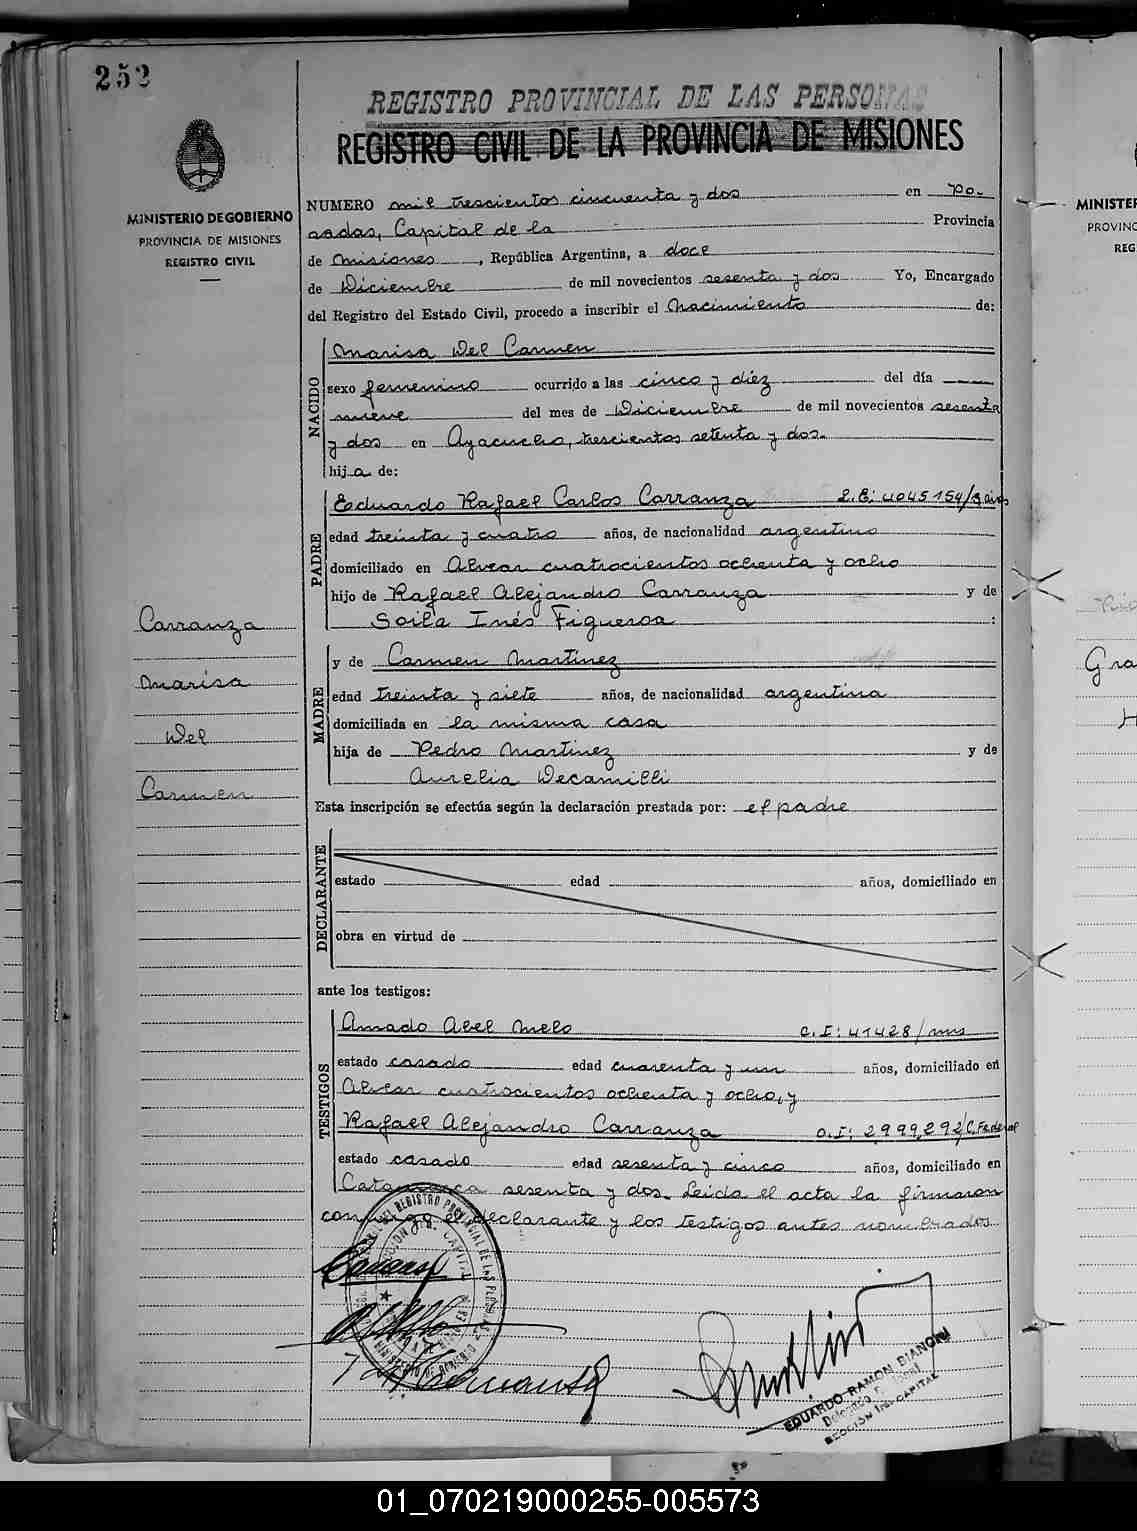 252
REGISTRO PROVINCIAL DE LAS PERSONAS
REGISTRO CIVIL DE LA PROVINCIA DE MISIONES
MINISTERIO DE GOBIERNO
PROVINCIA DE MISIONES
REGISTRO CIVIL
NUMERO mil trescientos cincuenta y dos en Po-
sadas, Capital de la Provincia
de Misiones, República Argentina, a doce
de Diciembre de mil novecientos sesenta y dos Yo, Encargado
del Registro del Estado Civil, procedo a inscribir el Nacimiento de:
NACIDO
Marisa Del Carmen
sexo femenino ocurrido a las cinco y diez del día
nueve del mes de Diciembre de mil novecientos sesenta
y dos en Ayacucho, trescientos setenta y dos.
hija de:
PADRE
Eduardo Rafael Carlos Carranza L.E: 4045154/
edad treinta y cuatro años, de nacionalidad argentino
domiciliado en Alvear cuatrocientos ochenta y ocho
hijo de Rafael Alejandro Carranza y de
Soila Inés Figueroa :
Carranza
Marisa
Del
Carmen
MADRE
y de Carmen Martinez
edad treinta y siete años, de nacionalidad argentina
domiciliada en la misma casa
hija de Pedro Martinez y de
Aurelia Decamilli
Esta inscripción se efectúa según la declaración prestada por: el padre
DECLARANTE
estado edad años, domiciliado en
obra en virtud de
ante los testigos:
TESTIGOS
Amado Abel Melo C.I: 41428/mns
estado casado edad cuarenta y un años, domiciliado en
Alvear cuatrocientos ochenta y ocho, y
Rafael Alejandro Carranza C.I: 2,999,292/C.Federal
estado casado edad sesenta y cinco años, domiciliado en
Catamarca sesenta y dos. Leída el acta la firmaron
conmigo el declarante y los testigos antes nombrados.
EDUARDO RAMON BIANCHI
SECCIÓN 1ra. CAPITAL
MINISTER
PROVINC
REG
Gra
01_070219000255-005573